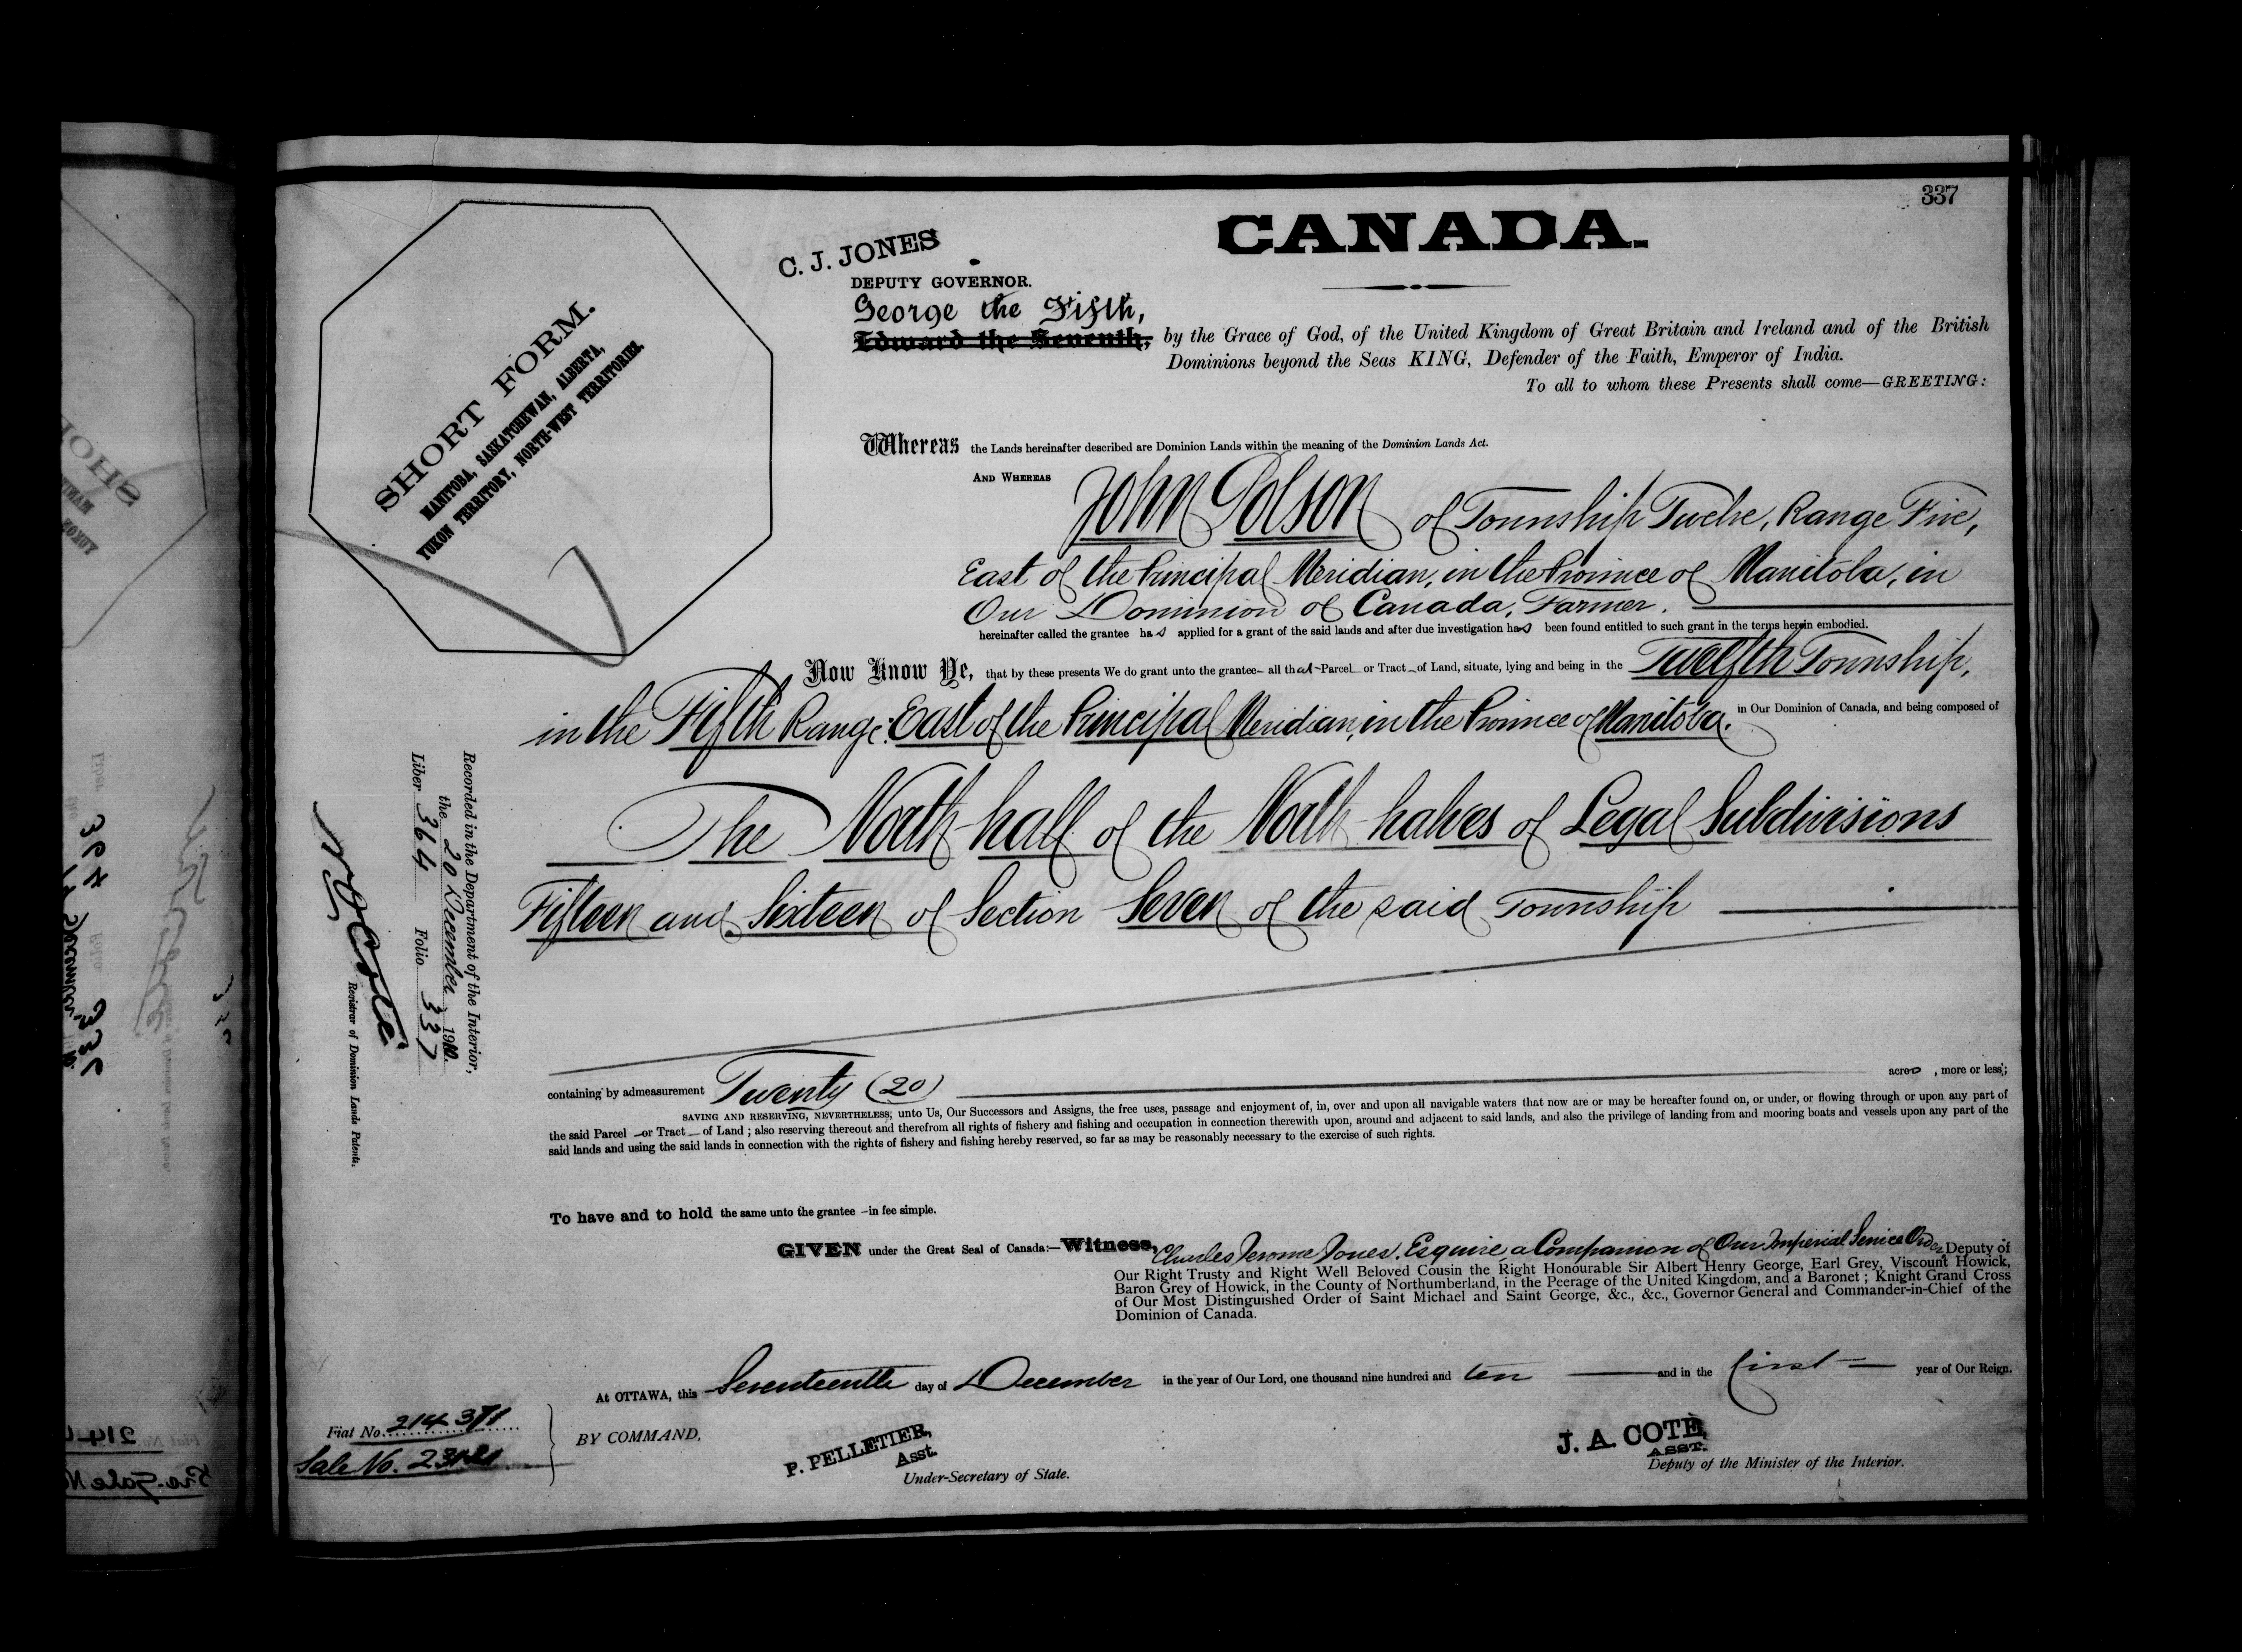 337
CANADA.
C. J. JONES
DEPUTY GOVERNOR.
George the Fifth,
Edward the Seventh, by the Grace of God, of the United Kingdom of Great Britain and Ireland and of the British
Dominions beyond the Seas KING, Defender of the Faith, Emperor of India.
To all to whom these Presents shall come—GREETING:
SHORT FORM.
MANITOBA, SASKATCHEWAN, ALBERTA,
YUKON TERRITORY, NORTH-WEST TERRITORIES.
Whereas the Lands hereinafter described are Dominion Lands within the meaning of the Dominion Lands Act.
AND WHEREAS John Polson of Township Twelve, Range Five,
East of the Principal Meridian, in the Province of Manitoba, in
Our Dominion of Canada, Farmer.
hereinafter called the grantee has applied for a grant of the said lands and after due investigation has been found entitled to such grant in the terms herein embodied.
Now Know Ye, that by these presents We do grant unto the grantee all that Parcel or Tract of Land, situate, lying and being in the Twelfth Township,
in the Fifth Range East of the Principal Meridian, in the Province of Manitoba. in Our Dominion of Canada, and being composed of
The North half of the North halves of Legal Subdivisions
Fifteen and Sixteen of Section Seven of the said Township
containing by admeasurement Twenty (20) acres, more or less;
SAVING AND RESERVING, NEVERTHELESS, unto Us, Our Successors and Assigns, the free uses, passage and enjoyment of, in, over and upon all navigable waters that now are or may be hereafter found on, or under, or flowing through or upon any part of
the said Parcel or Tract of Land; also reserving thereout and therefrom all rights of fishery and fishing and occupation in connection therewith upon, around and adjacent to said lands, and also the privilege of landing from and mooring boats and vessels upon any part of the
said lands and using the said lands in connection with the rights of fishery and fishing hereby reserved, so far as may be reasonably necessary to the exercise of such rights.
To have and to hold the same unto the grantee in fee simple.
GIVEN under the Great Seal of Canada:—Witness, Charles Jerome Jones, Esquire, a Companion of Our Imperial Service Order, Deputy of
Our Right Trusty and Right Well Beloved Cousin the Right Honourable Sir Albert Henry George, Earl Grey, Viscount Howick,
Baron Grey of Howick, in the County of Northumberland, in the Peerage of the United Kingdom, and a Baronet; Knight Grand Cross
of Our Most Distinguished Order of Saint Michael and Saint George, &c., &c., Governor General and Commander-in-Chief of the
Dominion of Canada.
At OTTAWA, this Seventeenth day of December in the year of Our Lord, one thousand nine hundred and ten and in the first year of Our Reign.
BY COMMAND,
P. PELLETIER,
Asst.
Under-Secretary of State.
J. A. COTE,
ASST.
Deputy of the Minister of the Interior.
Recorded in the Department of the Interior,
the 20 December 1910.
Liber 364 Folio 337
N O Coté
Registrar of Dominion Lands Patents.
Fiat No.
Sale No.